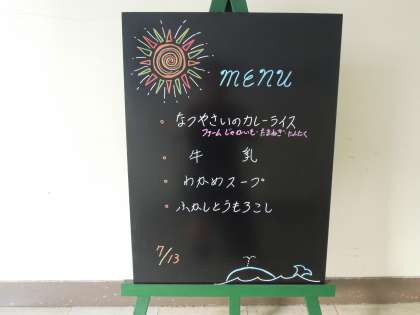 MENU
なつやさいのカレーライス
ファーム じゃがいも・たまねぎ・にんにく
牛乳
わかめスープ
ふかしとうもろこし
7/13